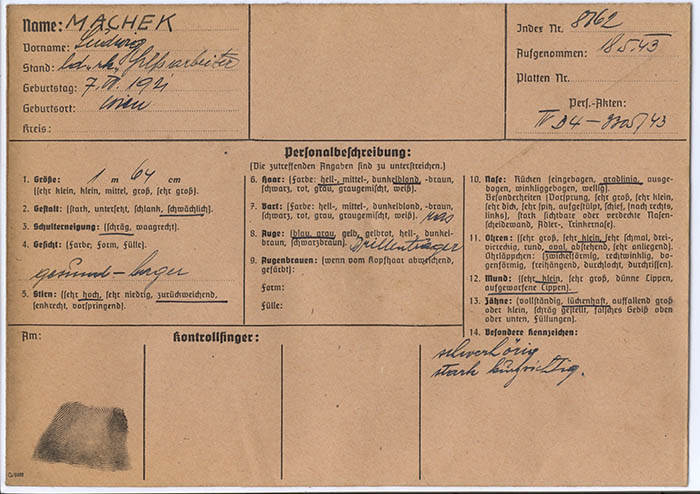 Name: MACHEK
Vorname: Ludwig
Stand: led., rk., Hilfsarbeiter
Geburtstag: 7. VI. 1921
Geburtsort: Wien
Kreis:
Index Nr. 8762
Aufgenommen: 18.5.43
Platten Nr.
Pers.-Akten:
IV D4 – 2205/43
Personalbeschreibung:
(Die zutreffenden Angaben sind zu unterstreichen.)
1. Größe: 1 m 64 cm
(sehr klein, klein, mittel, groß, sehr groß).
2. Gestalt: (stark, untersetzt, schlank, schwächlich).
3. Schulterneigung: (schräg, waagrecht).
4. Gesicht: (Farbe, Form, Fülle).
gesund –
5. Stirn: (sehr hoch, sehr niedrig, zurückweichend,
senkrecht, vorspringend).
6. Haar: (Farbe: hell-, mittel-, dunkelblond, -braun,
schwarz, rot, grau, graugemischt, weiß).
7. Bart: (Farbe: hell-, mittel-, dunkelblond, -braun,
schwarz, rot, grau, graugemischt, weiß). ras
8. Auge: (blau, grau, gelb, gelbrot, hell-, dunkel-
braun, schwarzbraun). Brillenträger
9. Augenbrauen: (wenn vom Kopfhaar abweichend,
gefärbt):
Form:
Fülle:
10. Nase: Rücken (eingebogen, gradlinig, ausge-
bogen, winkliggebogen, wellig).
Besonderheiten (Vorsprung, sehr groß, sehr klein,
sehr dick, sehr spitz, aufgestülpt, schief, (nach rechts,
links), stark sichtbare oder verdeckte Nasen-
scheidewand, Adler-, Trinkernase).
11. Ohren: (sehr groß, sehr klein, sehr schmal, drei-,
viereckig, rund, oval, abstehend, sehr anliegend).
Ohrläppchen: (zwickelförmig, rechtwinklig, bo-
genförmig, freihängend, durchlocht, durchrissen).
12. Mund: (sehr klein, sehr groß, dünne Lippen,
aufgeworfene Lippen).
13. Zähne: (vollständig, lückenhaft, auffallend groß
oder klein, schräg gestellt, falsches Gebiß oben
oder unten, Füllungen).
14. Besondere Kennzeichen:
schwerhörig
stark kurzsichtig.
Am:
Kontrollfinger: